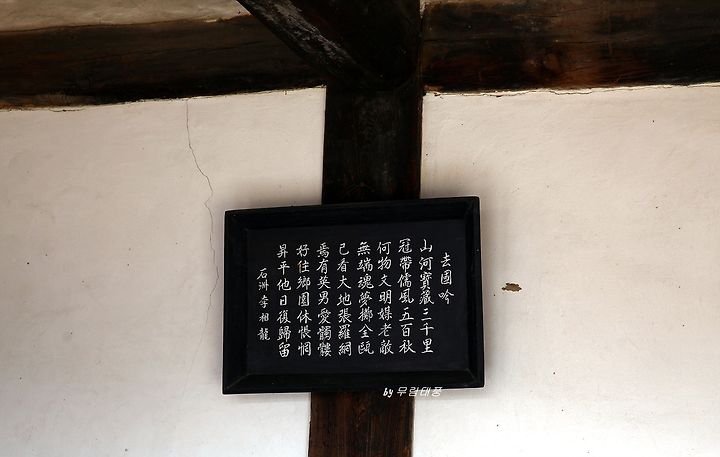 去國吟
山河寶藏三千里
冠帶儒風五百秋
何物文明媒老敵
無端魂夢擲全甌
已看大地張羅網
焉有英男愛髑髏
好住鄕園休悵惘
昇平他日復歸留
石洲 李相龍
by 무럼태풍